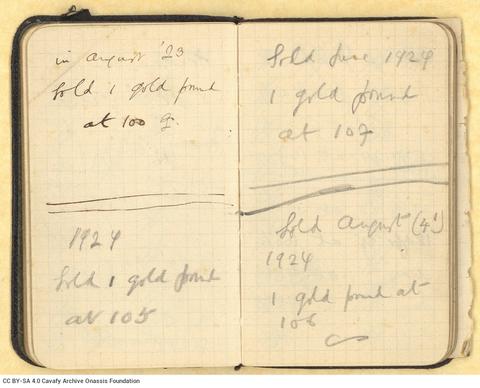 in August '23
Sold 1 gold pound
at 100
1924
Sold 1 gold pound
at 105
Sold June 1924
1 gold pound
at 107
Sold August
1924
1 gold pound at
106
CC BY-SA 4.0 Cavafy Archive Onassis Foundation